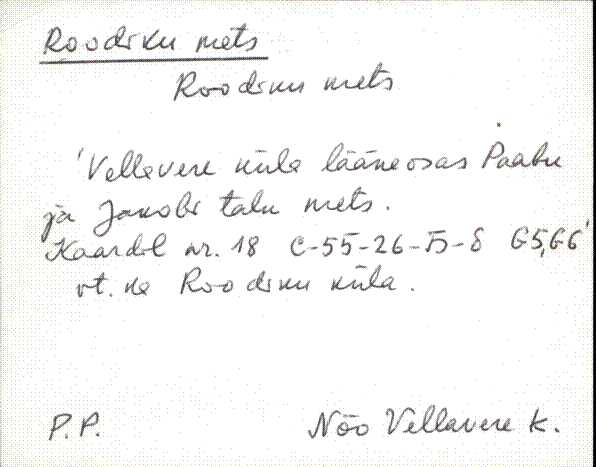 Roodiku mets
Roodiku mets
'Vellavere küla lääneosas Paabu
ja Jakobi talu mets.
Kaardil nr. 18 C-55-26-Б-б G5,G6'
vt. ka Roodiku küla.
P.P.
Nõo Vellavere k.